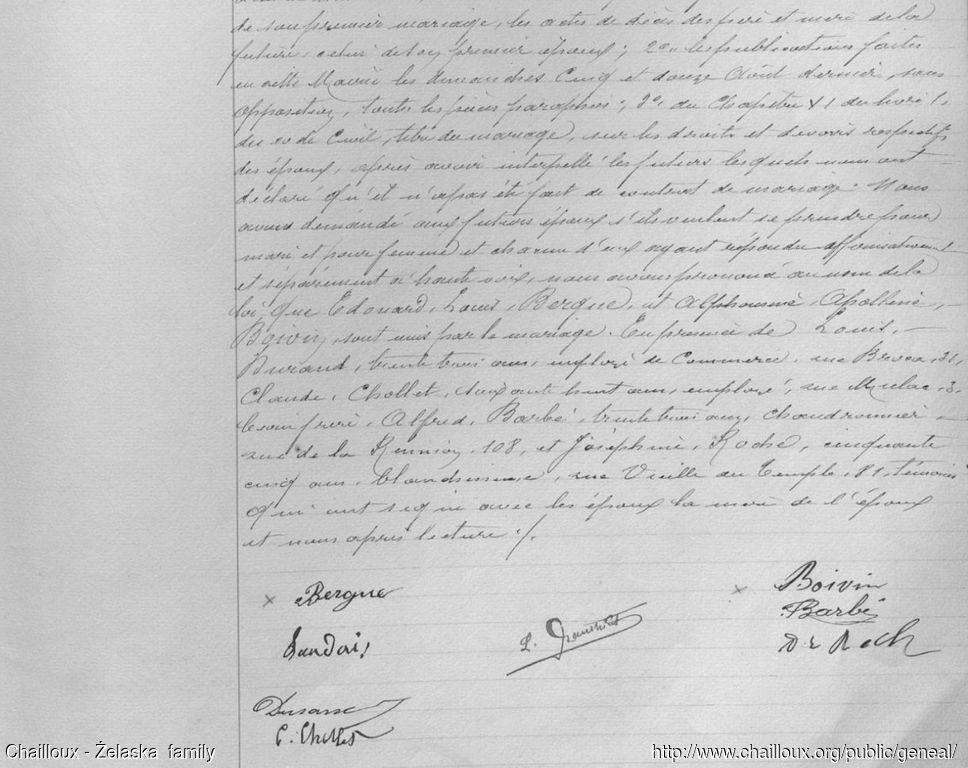 de son premier mariage, les actes de décès des père et mère de la
future, celui de son premier époux ; 2° les publications faites
en cette Mairie les dimanches cinq et douze Août dernier, sans
opposition, toutes les pièces paraphées ; 3° du Chapitre VI du livre 1,
du code Civil, titre du mariage, sur les droits et devoirs respectifs
des époux, après avoir interpellé les futurs lesquels nous ont
déclaré qu'il n'a pas été fait de contrat de mariage : Nous
avons demandé aux futurs époux s'ils veulent se prendre pour
mari et pour femme et chacun d'eux ayant répondu affirmativement
et séparément à haute voix, nous avons prononcé au nom de la
loi que Edouard, Louis, Bergue, et Alphonsine, Apolline,
Boivin, sont unis par le mariage. En présence de Louis,
Durand, trente trois ans, employé de Commerce, rue Broca, 31,
Claude, Chollet, soixante huit ans, employé, rue 3,
Alfred, Barbé, trente trois ans, chaudronnier,
rue de la Réunion, 108, et Joséphine, Roche, cinquante
cinq ans, blanchisseuse, rue Vieille du Temple, 81, témoins
qui ont signé avec les époux la mère de l'époux
et nous après lecture ./.
x Bergue
x Boivin
Barbé
L.
C. Chollet
Chailloux - Želaska family
http://www.chailloux.org/public/geneal/